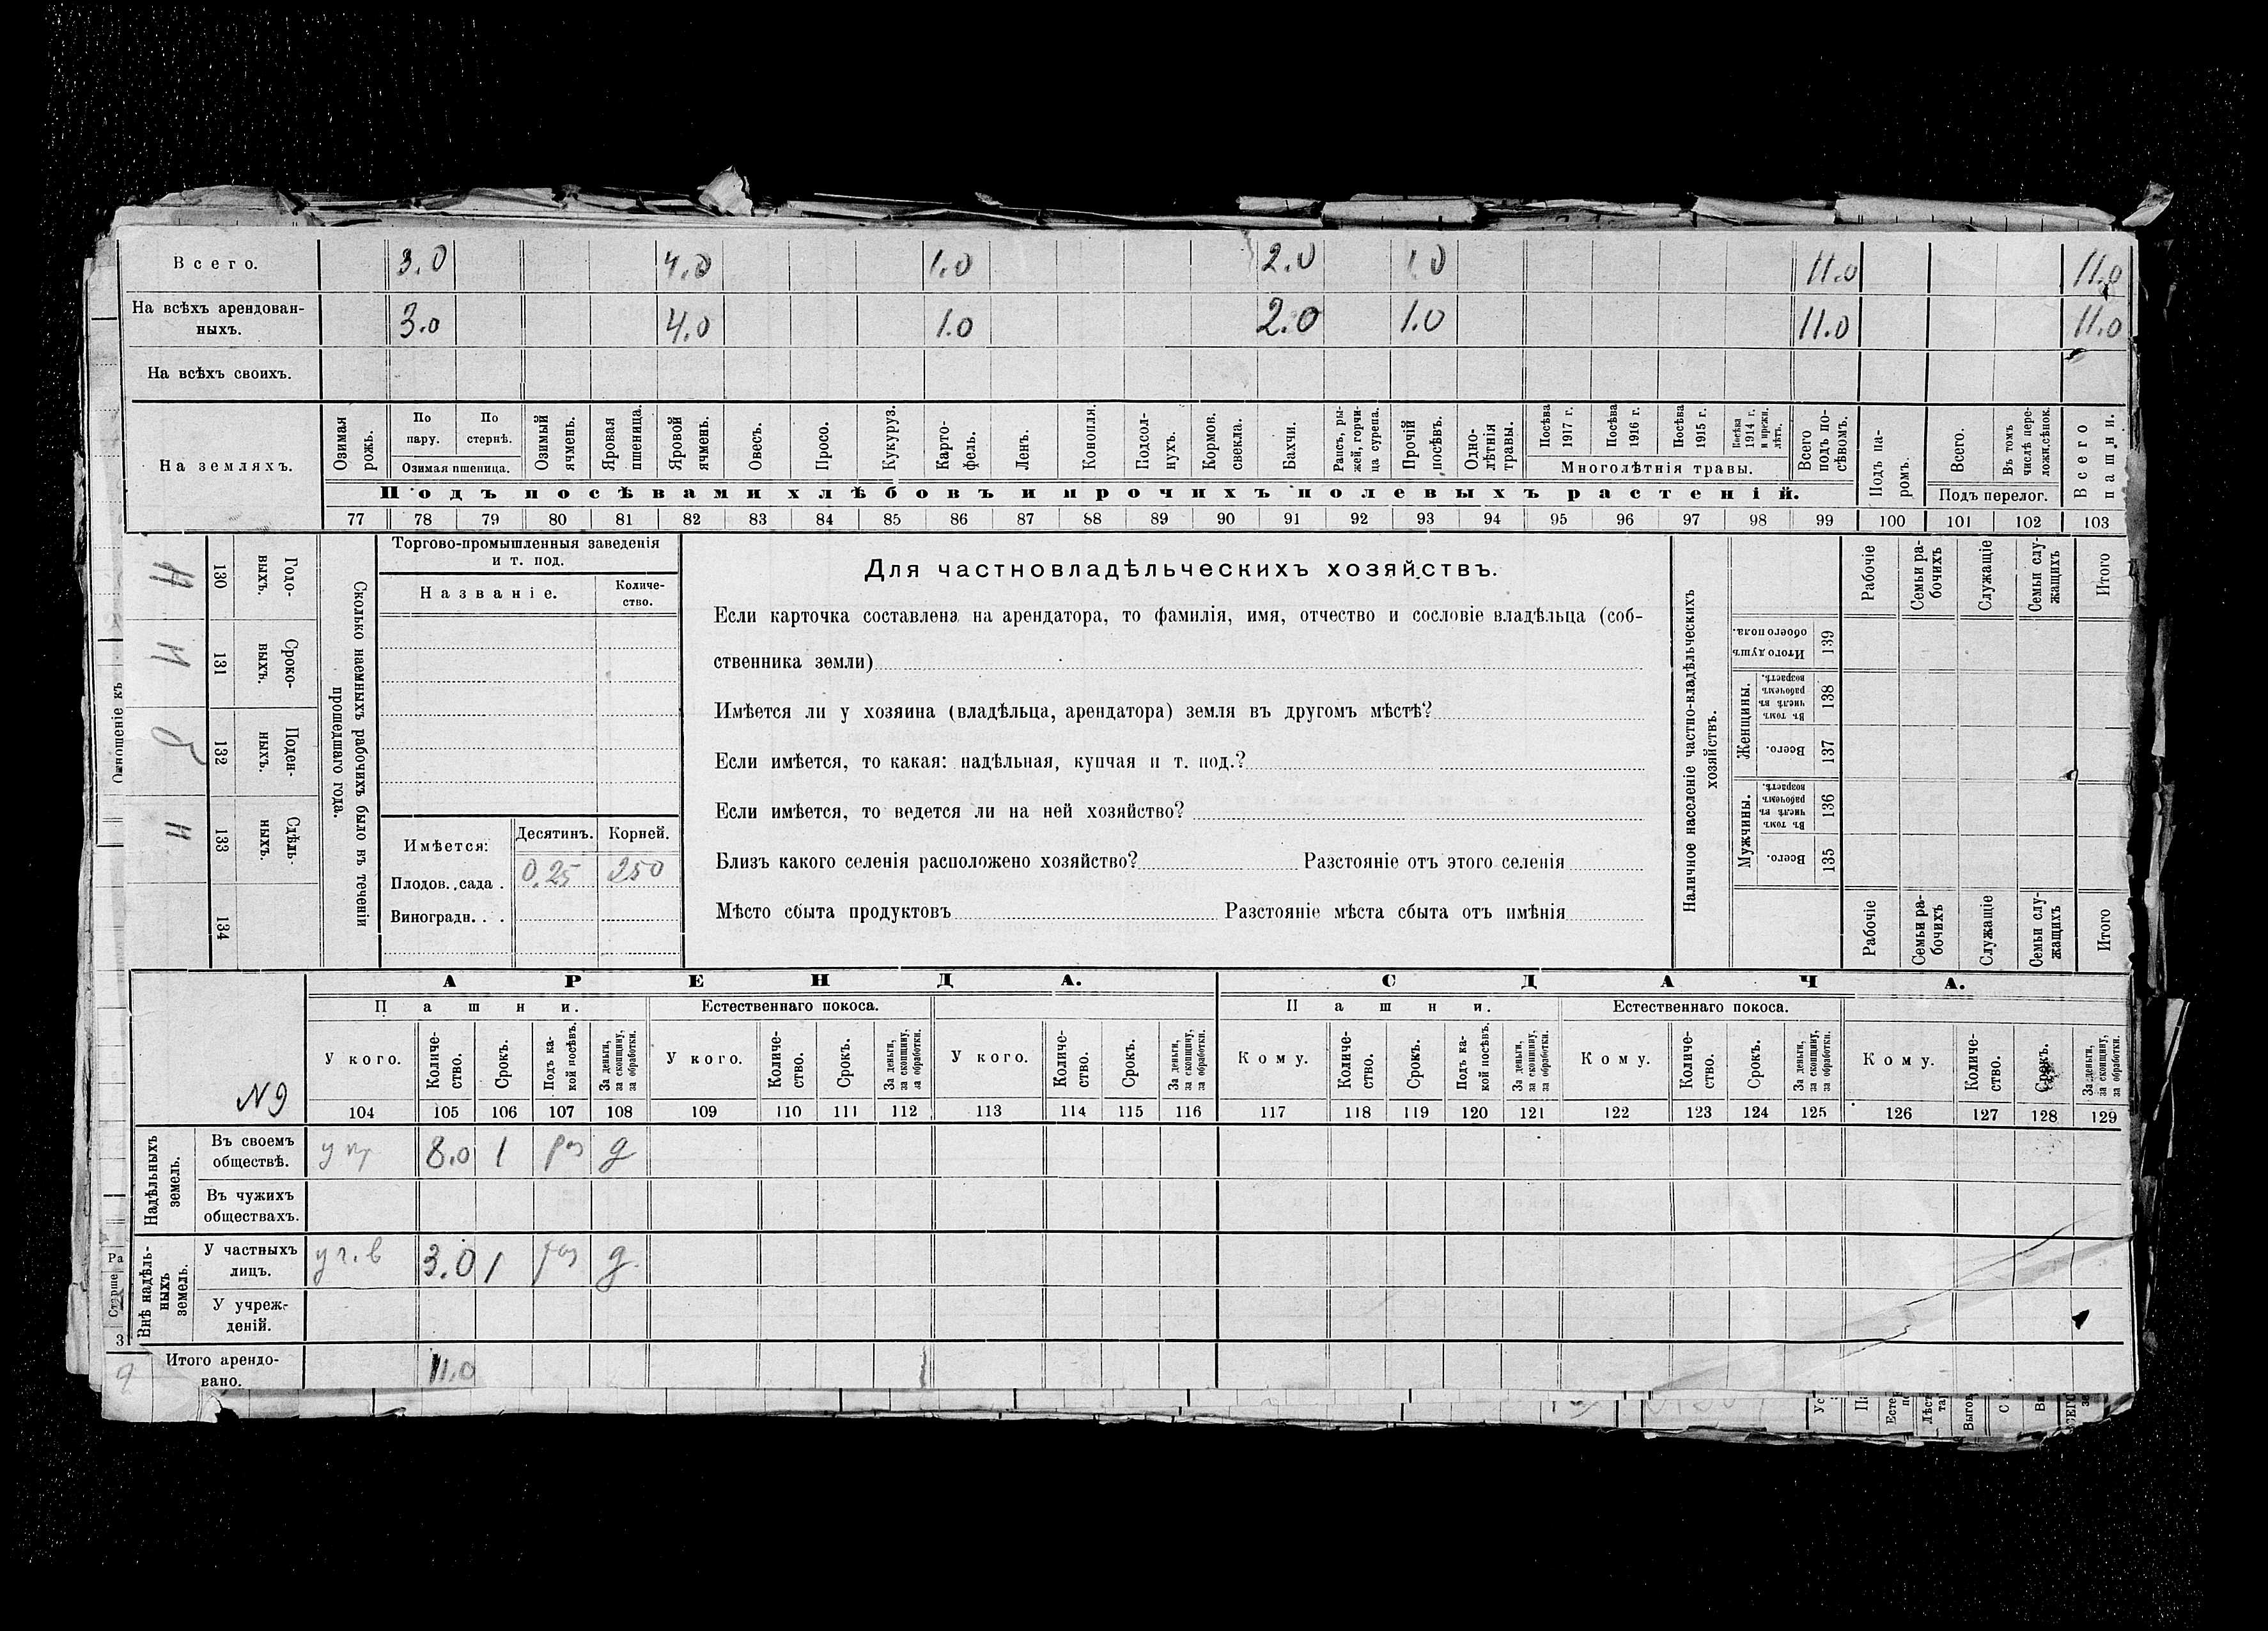 Всего. 3.0 4.0 1.0 2.0 1 0 11.0 11.0
На всѣхъ арендован-
ныхъ. 3.0 4.0 1.0 2.0 1.0 11.0 11.0
На всѣхъ своихъ.
На земляхъ.
Озимая рожь.
По пару.
По стернѣ.
Озимая пшеница.
Озимый ячмень.
Яровая пшеница.
Яровой ячмень.
Овесъ.
Просо.
Кукуруз.
Карто-
фель.
Ленъ.
Конопля.
Подсол-
нухъ.
Кормов. свекла.
Бахчи.
Рапсъ, ры-
жей, горчи-
ца сурепа.
Прочій посѣвъ.
Одно-
лѣтнія травы.
Посѣва 1917 г.
Посѣва 1916 г.
Посѣва 1915 г.
Посѣва 1914 г. и прежн. лѣтъ.
Многолѣтнія травы.
Всего подъ по-
сѣвомъ.
Подъ па-
ромъ.
Всего.
Въ томъ числѣ пере-
ложн.сѣнок.
Подъ перелог.
Всего пашни.
Подъ посѣвами хлѣбовъ и прочихъ полевыхъ растеній.
77 78 79 80 81 82 83 84 85 86 87 88 89 90 91 92 93 94 95 96 97 98 99 100 101 102 103
Отношеніе къ
Н Н Н
130 131 132 133 134
Годо-
выхъ.
Сроко-
выхъ.
Поден-
ныхъ.
Сдѣль-
ныхъ.
Сколько наемныхъ рабочихъ было въ теченіи
прошедшаго года.
Торгово-промышленныя заведенія
и т. под.
Названіе.
Количе-
ство.
Имѣется:
Десятинъ. Корней.
Плодов. сада . 0.25 250
Виноградн. . .
Для частновладѣльческихъ хозяйствъ.
Если карточка составлена на арендатора, то фамилія, имя, отчество и сословіе владѣльца (соб-
ственника земли)
Имѣется ли у хозяина (владѣльца, арендатора) земля въ другомъ мѣстѣ?
Если имѣется, то какая: надѣльная, купчая и т. под.?
Если имѣется, то ведется ли на ней хозяйство?
Близъ какого селенія расположено хозяйство? Разстояніе отъ этого селенія
Мѣсто сбыта продуктовъ Разстояніе мѣста сбыта отъ имѣнія
Наличное населеніе частно-владѣльческихъ
хозяйствъ.
Рабочіе
Семьи ра-
бочихъ
Служащіе
Семьи слу-
жащихъ
Итого
Итого душъ обоего пола. 139
Женщины.
Въ томъ числѣ въ рабочемъ возрастѣ. 138
Всего. 137
Мужчины.
Въ томъ числѣ въ рабочемъ возрастѣ. 136
Всего. 135
Рабочіе
Семьи ра-
бочихъ
Служащіе
Семьи слу-
жащихъ
Итого
АРЕНДА. СДАЧА.
Пашни. Естественнаго покоса. Пашни. Естественнаго покоса.
У кого.
Количе-
ство.
Срокъ.
Подъ ка-
кой посѣвъ.
За деньги, за скопщину, за обработки.
У кого.
Количе-
ство.
Срокъ.
За деньги, за скопщину, за обработки.
У кого.
Количе-
ство.
Срокъ.
За деньги, за скопщину, за обработки.
Кому.
Количе-
ство.
Срокъ.
Подъ ка-
кой посѣвъ.
За деньги, за скопщину, за обработки.
Кому.
Количе-
ство.
Срокъ.
За деньги, за скопщину, за обработки.
Кому.
Количе-
ство.
Срокъ.
За деньги, за скопщину, за обработки.
N 9
104 105 106 107 108 109 110 111 112 113 114 115 116 117 118 119 120 121 122 123 124 125 126 127 128 129
Надѣльныхъ
земель.
Въ своемъ
обществѣ. 8.0 1 раз д
Въ чужихъ
обществахъ.
Внѣ надѣль-
ныхъ
земель.
У частныхъ
лицъ. у ч. в 3.0 1 раз д.
У учреж-
деній.
Итого арендо-
вано. 11.0
Ра
Старше
3
9